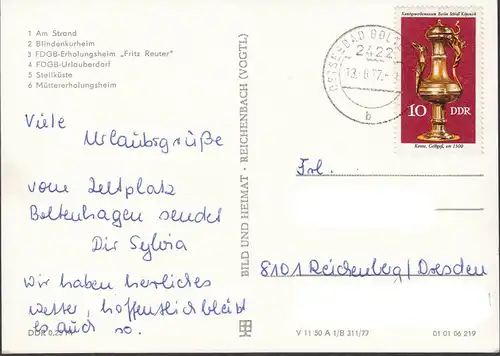 1 Am Strand
2 Blindenkurheim
3 FDGB-Erholungsheim „Fritz Reuter"
4 FDGB-Urlauberdorf
5 Steilküste
6 Müttererholungsheim
Viele
Urlaubsgrüße
vom Zeltplatz
Boltenhagen sendet
Dir Sylvia
Wir haben herrliches
Wetter, hoffentlich bleibt
es auch so.
DDR 0,25 M
BILD UND HEIMAT · REICHENBACH (VOGTL)
OSTSEEBAD
2422
b
Kunstgewerbemuseum Berlin Schloß Köpenick
10 DDR
Kanne, Goldguß, um 1500
Frl.
8101 Reichenberg/Dresden
V 11 50 A 1/B 311/77
01 01 06 219